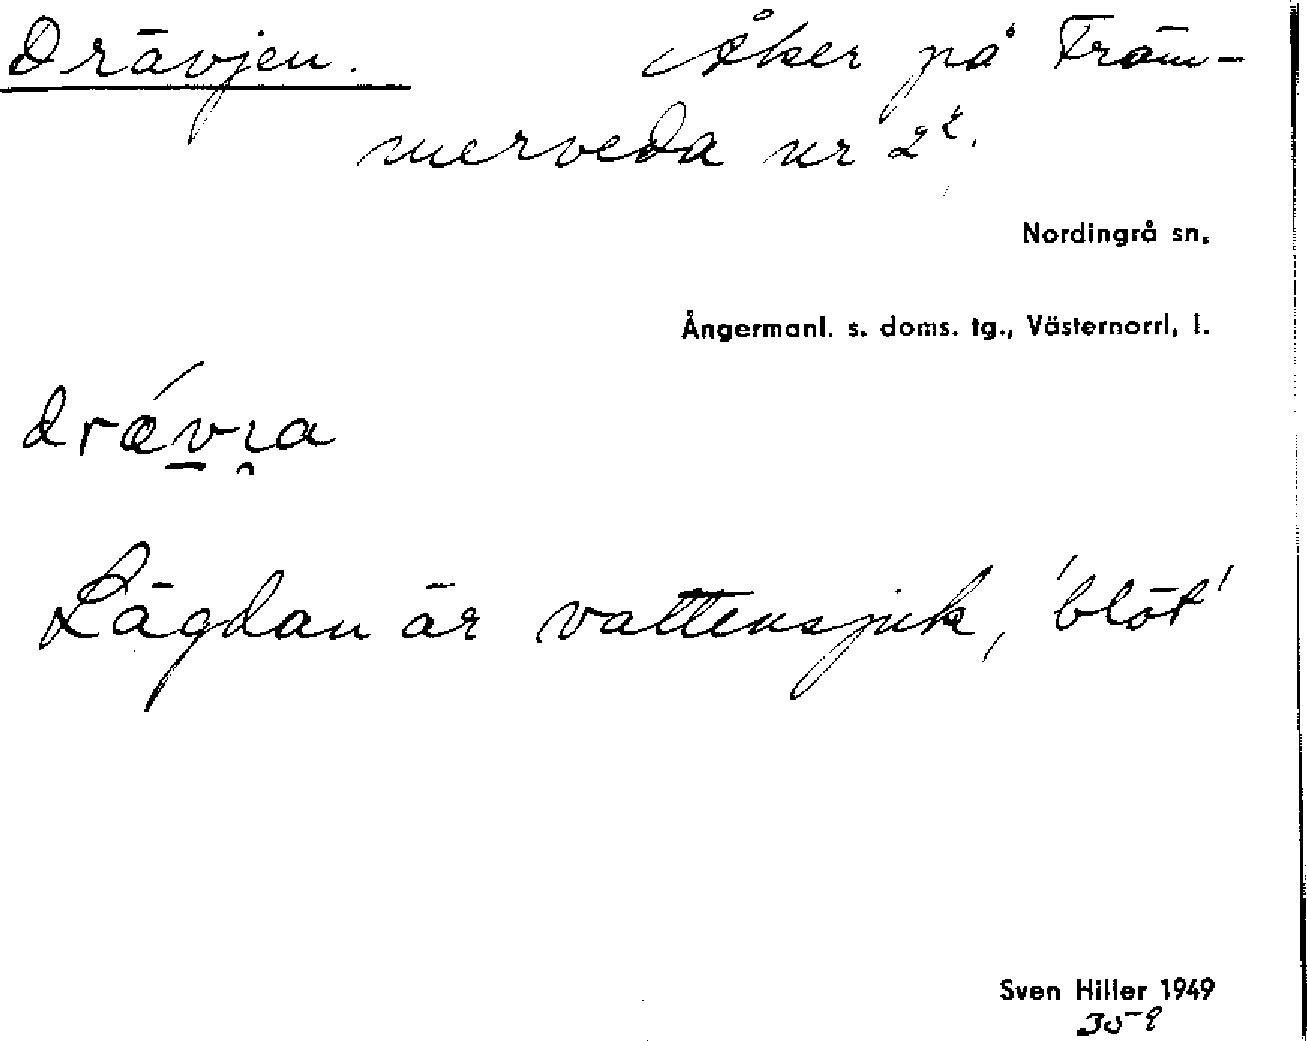 Drävjen. Åker på Främ-
merveda nr 2².
Nordingrå sn.
Ångermanl. s. doms. tg., Västernorrl. l.
drǽvı̯a
Lägdan är vattensjuk, 'blöt'
Sven Hiller 1949